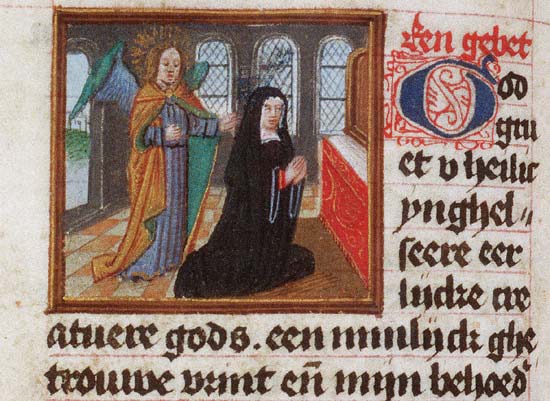 Een gebet
God
gru
et v heilic
ynghel⸗
seere eer
lijcke cre
atuere gods. een minlijck ghe
trouwe vrint en̄ mijn behoed